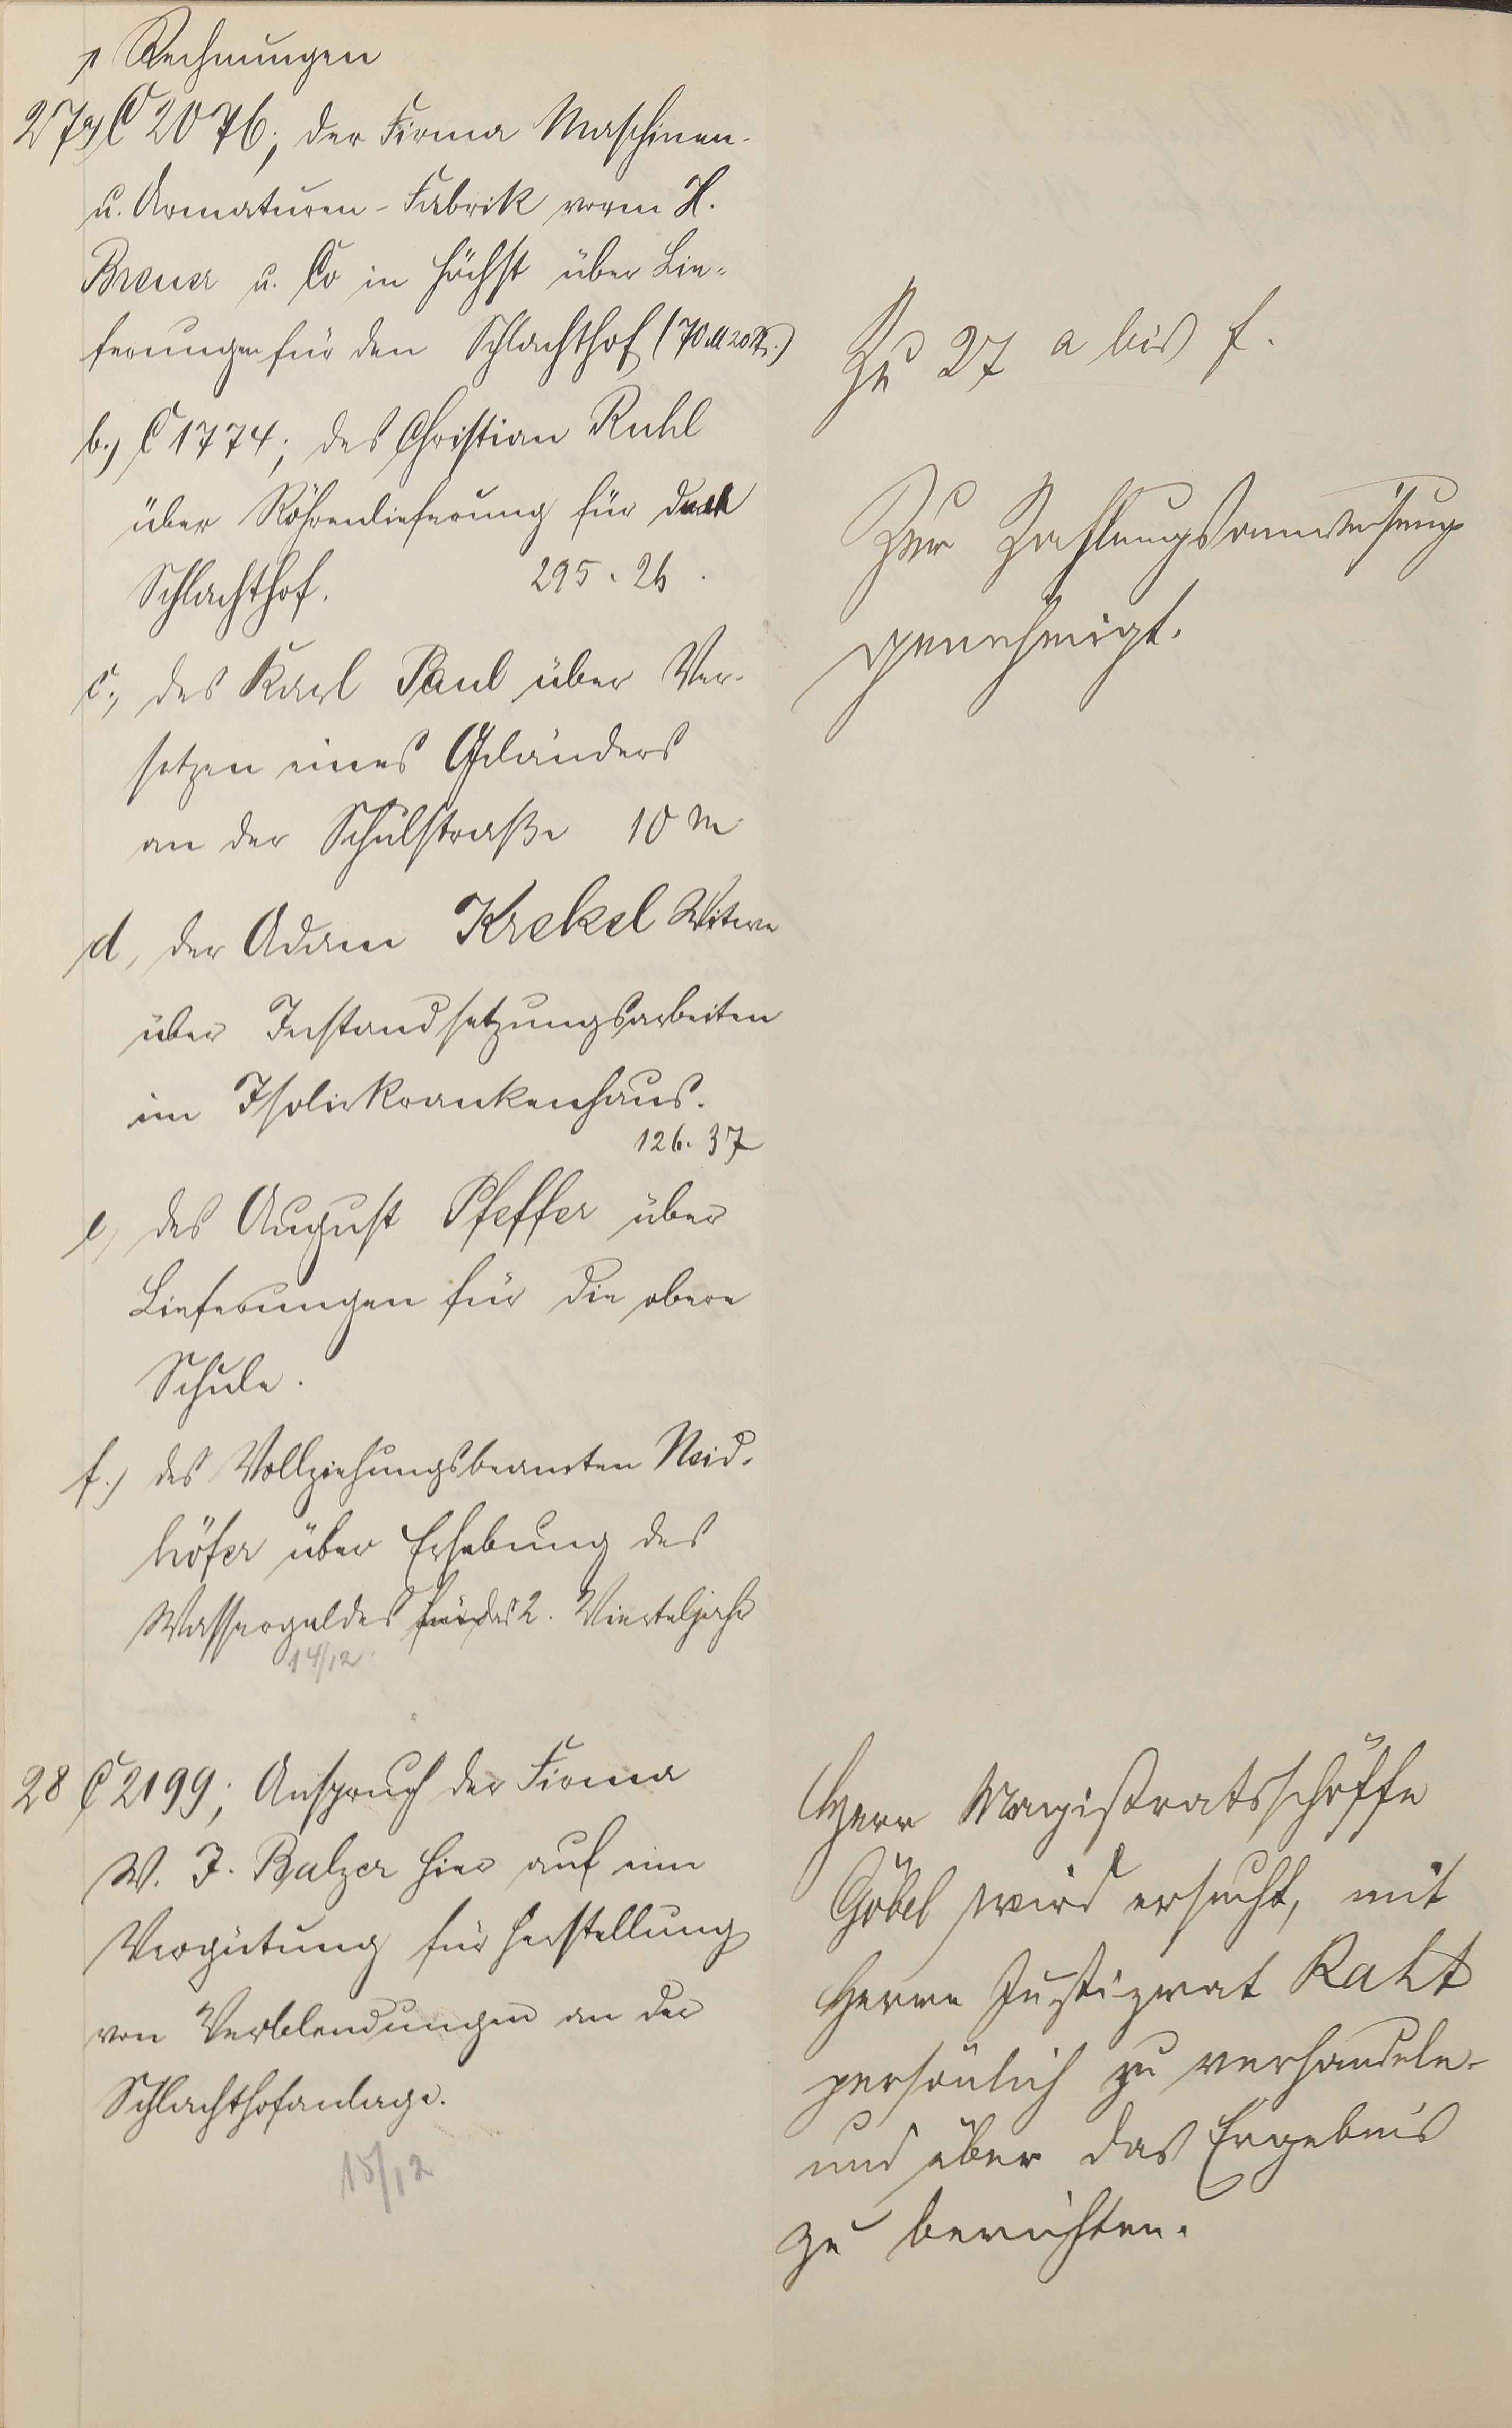 Rechnungen
27a) C 2076; der Firma Maschinen-
u. Armaturen-Fabrik vorm H.
Breuer u. Co in Höchst über Lie-
ferungen für den Schlachthof (70 M 20 Pf.)
b.) C 1774; des Christian Ruhl
über Röhrenlieferung für den
Schlachthof. 295.26.
c., des Karl Paul über Ver-
setzen eines Geländers
an der Schulstraße 10 M
d, der Adam Krekel Witwe
über Instandsetzungsarbeiten
im Isolierkrankenhaus.
126.37
e, des August Pfeffer über
Lieferungen für die obere
Schule.
f.) des Vollziehungsbeamten Neid-
höfer über Erhebung des
Wassergeldes für das 2. Vierteljahr
14/12.
Zu 27 a bis f.
Zur Zahlungsanweisung
genehmigt.
28 C 2199; Anspruch der Firma
W. J. Balzer hier auf eine
Vergütung für Herstellung
von Verblendungen an der
Schlachthofanlage.
15/12
Herr Magistratsschöffe
Göbel wird ersucht, mit
Herrn Justizrat Raht
persönlich zu verhandeln
und über das Ergebnis
zu berichten.